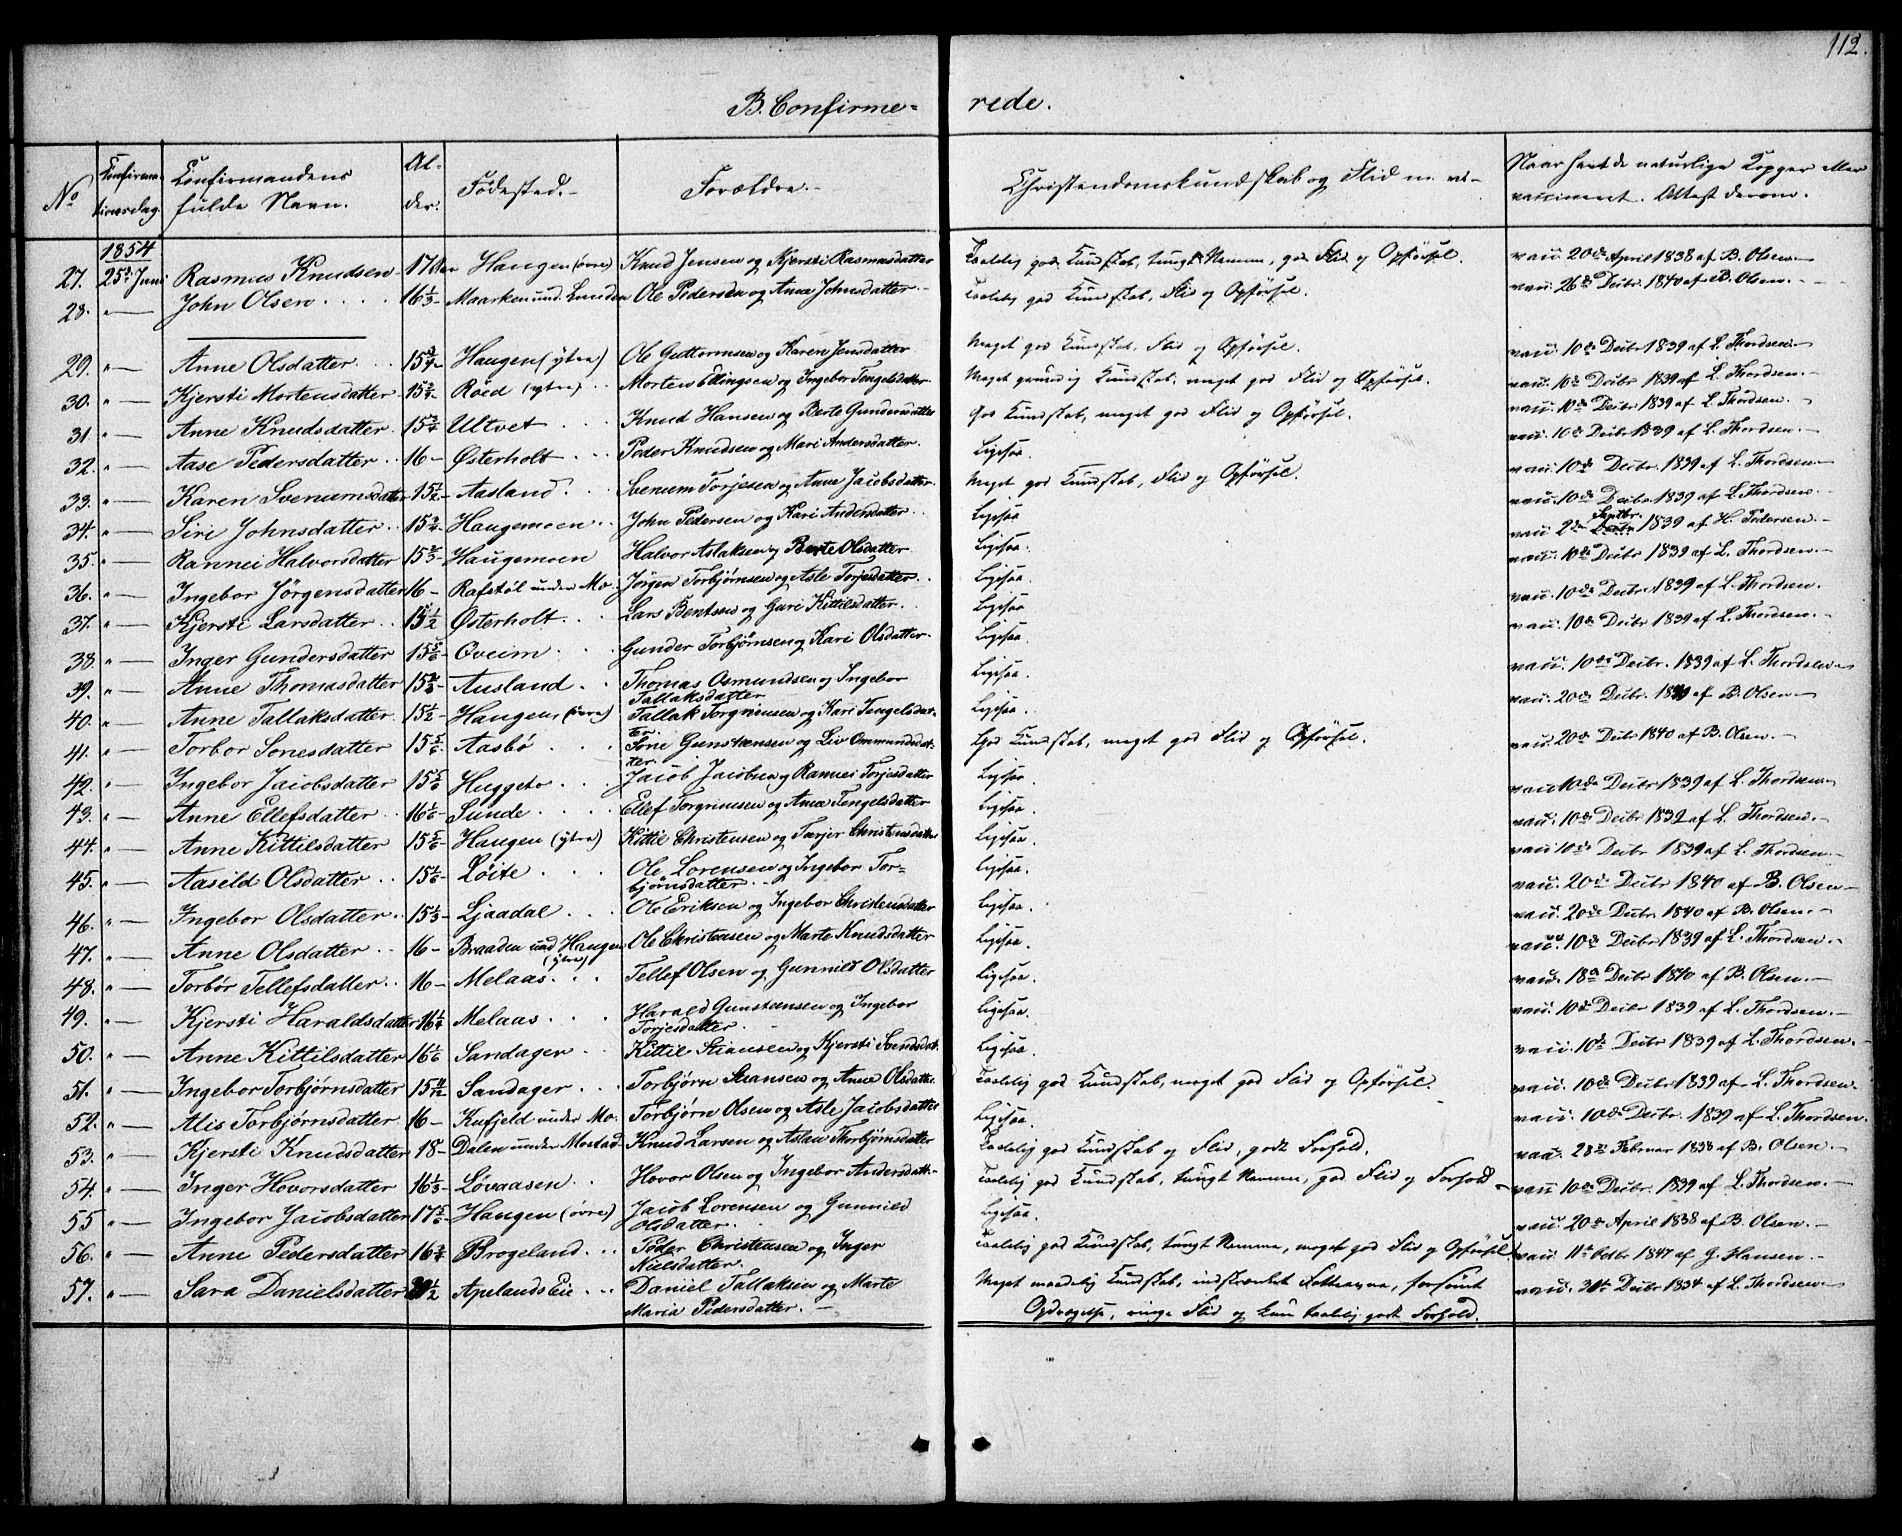 112.
B. Confirme- rede.
No Confirmationsdag Confirmandens fulde Navn. Alder. Fødested.- Forældre.- Christendomskundskab og Flid m. v.- Naar havt de naturlige Kopper eller vaccineret. Attest derom.
1854
27. 25de Juni Rasmus Knudsen 17 Haugen (övre) Knud Jensen og Kjersti Rasmusdatter Taalelig god Kundskab, tungt Nemme, god Flid og Opförsel. vacc. 20de April 1838 af B. Olsen
28. " John Olsen 16 1/3 Maarken und. Lunden Ole Pedersen og Anne Johnsdatter Taalelig god Kundskab, Flid og Opförsel. vacc. 26de Decbr. 1840 af B. Olsen.
29. " Anne Olsdatter 15 3/4 Haugen (ytre) Ole Guttormsen og Karen Jensdatter Meget god Kundskab, Flid og Opförsel. vacc. 10de Decbr. 1839 af L. Thordsen.
30. " Kjersti Mortensdatter 15 3/4 Röed (ytre) Morten Ellingsen og Ingebor Tengelsdatter Meget grundig Kundskab, meget god Flid og Opförsel. vacc. 10de Decbr 1839 af L. Thordsen.
31. " Anne Knudsdatter 15 3/4 Ultvet Knud Hansen og Berte Gundersdatter God Kundskab, meget god Flid og Opförsel. vacc. 10de Decbr. 1839 af L. Thordsen.
32. " Aase Pedersdatter 16 Østerholt Peder Knudsen og Mari Andersdatter. Ligesaa. vacc. 10de Decbr 1839 af L. Thordsen.
33. " Karen Svenumsdatter 15 1/2 Aasland Svenum Torjesen og Anne Jacobsdatter. Meget god Kundskab, Flid og Opförsel. vacc. 10de Decbr. 1839 af L. Thordsen
34. " Siri Johnsdatter 15 3/4 Haugemoen John Pedersen og Kari Andersdatter. Ligesaa vacc. 10de Decbr 1839 af L. Thordsen.
35. " Rannei Halvorsdatter 15 2/3 Haugemoen Halvor Aslaksen og Berte Olsdatter. Ligesaa. vacc 2de Septbr. 1839 af H. Pedersen.
36. " Ingebor Jörgensdatter 16 Rafstöl under Mo. Jörgen Torbjørnsen og Asle Torjesdatter Ligesaa. vacc. 10de Decbr 1839 af L. Thordsen.
37. " Kjersti Larsdatter 15 1/2 Østerholt Lars Bentsen og Guri Kittilsdatter. Ligesaa. vacc. 10de Decbr. 1839 af L. Thordsen.
38. " Inger Gundersdatter 15 5/6 Oveim Gunder Torbjørnsen og Kari Olsdatter. Ligesaa. vacc. 10de Decbr 1839 af L. Thordsen.
39. " Anne Thomasdatter 15 2/3 Ausland Thomas Osmundsen og Ingebor Tallaksdatter Ligesaa. vacc. 10de Decbr. 1839 af L. Thordsen
40. " Anne Tallaksdatter 15 1/2 Haugen (övre) Tallak Torgrimsen og Kari Tengelsdatter. Ligesaa. vacc. 20de Decbr. 1840 af B. Olsen
41. " Torbor Sonesdatter 15 5/6 Aasbö Sone Gunstensen og Liv Ommundsdatter. God Kundskab, meget god Flid og Opförsel. vacc. 20de Decbr 1840 af B. Olsen.
42. " Ingebor Jacobsdatter 15 5/6 Huggeto Jacob Jacobsen og Rannei Torjesdatter Ligesaa vacc 10de Decbr 1839 af L. Thordsen
43. " Anne Ellefsdatter 16 1/6 Sunde Ellef Torgrimsen og Anne Tengelsdatter Ligesaa. vacc. 10de Decbr 1839 af L. Thordsen.
44. " Anne Kittilsdatter 15 5/6 Haugen (ytre) Kittil Christensen og Torjer Christensdatter Ligesaa. vacc 10de Decbr 1839 af L. Thordsen.
45. " Aasild Olsdatter 15 1/6 Löite Ole Lorensen og Ingebor Torbjørnsdatter Ligesaa. vacc. 20de Decbr 1840 af B. Olsen
46. " Ingebor Olsdatter 15 1/3 Ljaadal Ole Eriksen og Ingebor Christensdatter Ligesaa. vacc. 20de Decbr. 1840 af B. Olsen.
47. " Anne Olsdatter 16 Braaden und Haugen (ytre) Ole Christensen og Marte Knudsdatter Ligesaa. vacc. 10de Decbr 1839 af L. Thordsen.
48. " Torbör Tellefsdatter 16 Melaas Tellef Olsen og Gunnild Olsdatter Ligesaa. vacc. 18de Decbr 1840 af B. Olsen.
49. " Kjersti Haraldsdatter 16 1/4 Melaas Harald Gunstensen og Ingebor Torjesdatter Ligesaa. vacc. 10de Decbr 1839 af L. Thordsen.
50. " Anne Kittilsdatter 16 1/6 Sandager Kittil Stiansen og Kjersti Svendsdat. Ligesaa. vacc. 10de Decbr 1839 af L. Thordsen.
51. " Ingebor Torbjørnsdatter 15 11/12 Sandager Torbjørn Stiansen og Anne Olsdatter Taalelig god Kundskab, meget god Flid og Opförsel. vacc. 10de Decbr 1839 af L. Thordsen
52. " Alis Torbjørnsdatter 16 Kufjeld under Mo. Torbjørn Olsen og Asle Jacobsdatter Ligesaa. vacc. 10de Decbr. 1839 af L. Thordsen.
53. " Kjersti Knudsdatter 18 Dalen under Mostad Knud Larsen og Aslau Thorbjørnsdatter Taalelig god Kundskab og Flid, godt Forhold. vacc. 28de Februar 1838 af B. Olsen.
54. " Inger Hovorsdatter 16 1/3 Lövaasen Hovor Olsen og Ingebor Andersdatt. Taalelig god Kundskab, tungt Nemme, god Flid og Forhold vacc 10de Decbr. 1839 af L. Thordsen.
55 " Ingebor Jacobsdatter 17 5/6 Haugen (övre) Jacob Lorensen og Gunnild Olsdatter. Ligesaa. vacc. 20de April 1838 af B. Olsen.
56. " Anne Pedersdatter 16 3/4 Brogeland Peder Christensen og Inger Nielsdatter. Taalelig god Kundskab, tungt Nemme, meget god Flid og Opförsel vacc. 11te Octbr 1847 af G. Hansen.
57. " Sara Danielsdatter 1/2 Apelands Eie Daniel Tallaksen og Marte Maria Pedersdatter. Meget maadelig Kundskab, indskrænket Fatteevne, forsömt Opdragelse, ringe Flid og kun taalelig godt Forhold. vacc. 31te Decbr 1834 af L. Thordsen